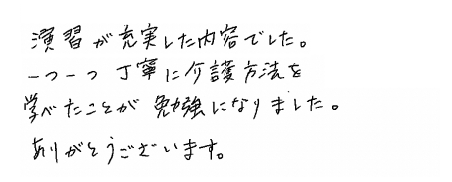 演習が充実した内容でした。
一つ一つ丁寧に介護方法を
学べたことが勉強になりました。
ありがとうございます。